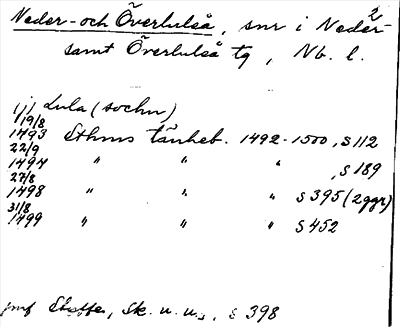 2
Neder- och Överluleå, snr i Neder-
samt Överluleå tg, Nb. l.
(j) Lula (sochn)
19/8
1493 Sthms tänkeb. 1492-1500, s 112
22/9
1494 " " " , s 189
27/8
1498 " " " s 395 (2 ggr)
31/8
1499 " " " s 452
jmf Steffe, Sk. u. u., s 398